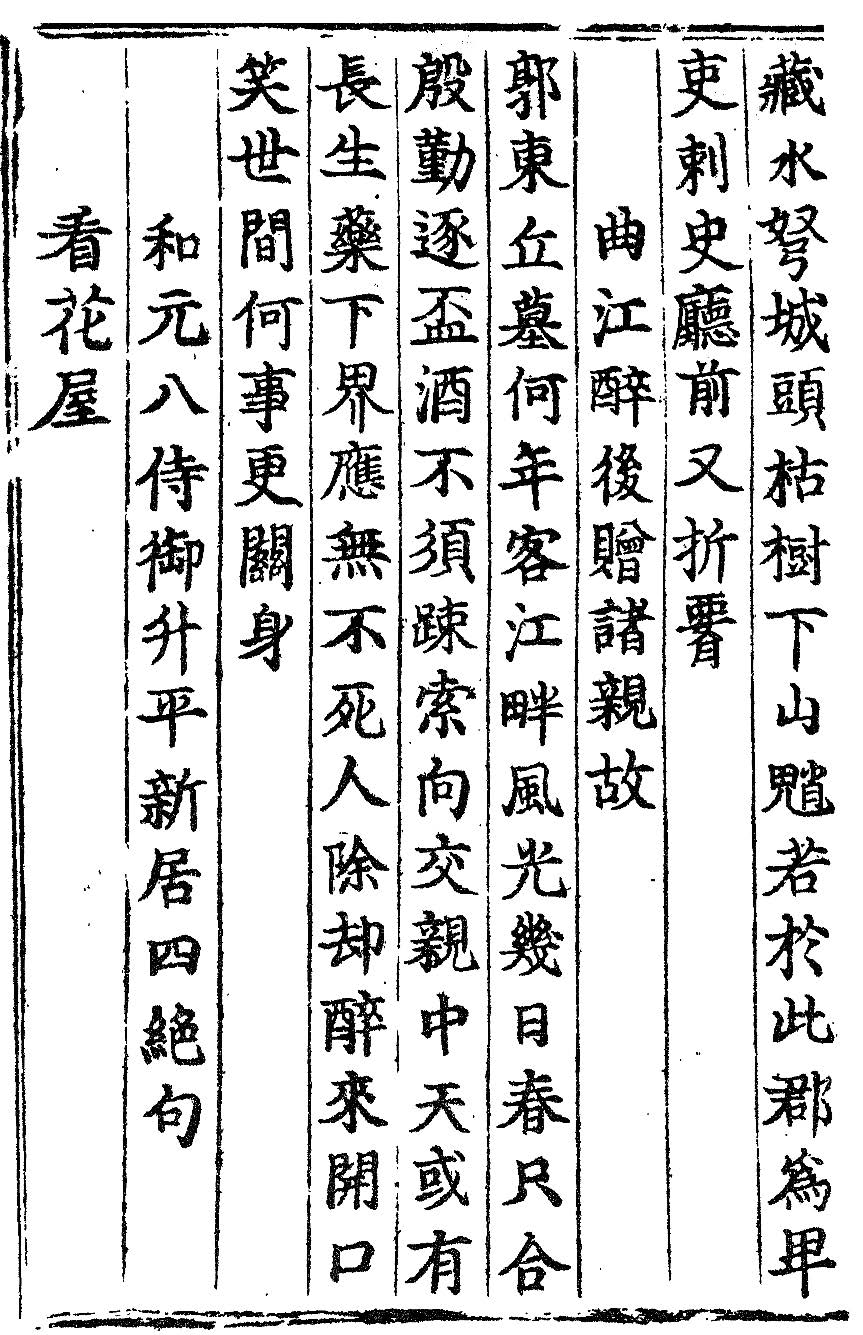 藏水弩城頭枯樹下山魈若於此郡爲卑
吏刺史廳前又折署
曲江醉後贈諸親故
郭東丘墓何年客江畔風光幾日春只合
殷勤逐盃酒不須踈索向交親中天或有
長生藥下界應無不死人除却醉來開口
笑世間何事更關身
和元八侍御升平新居四絕句
看花屋